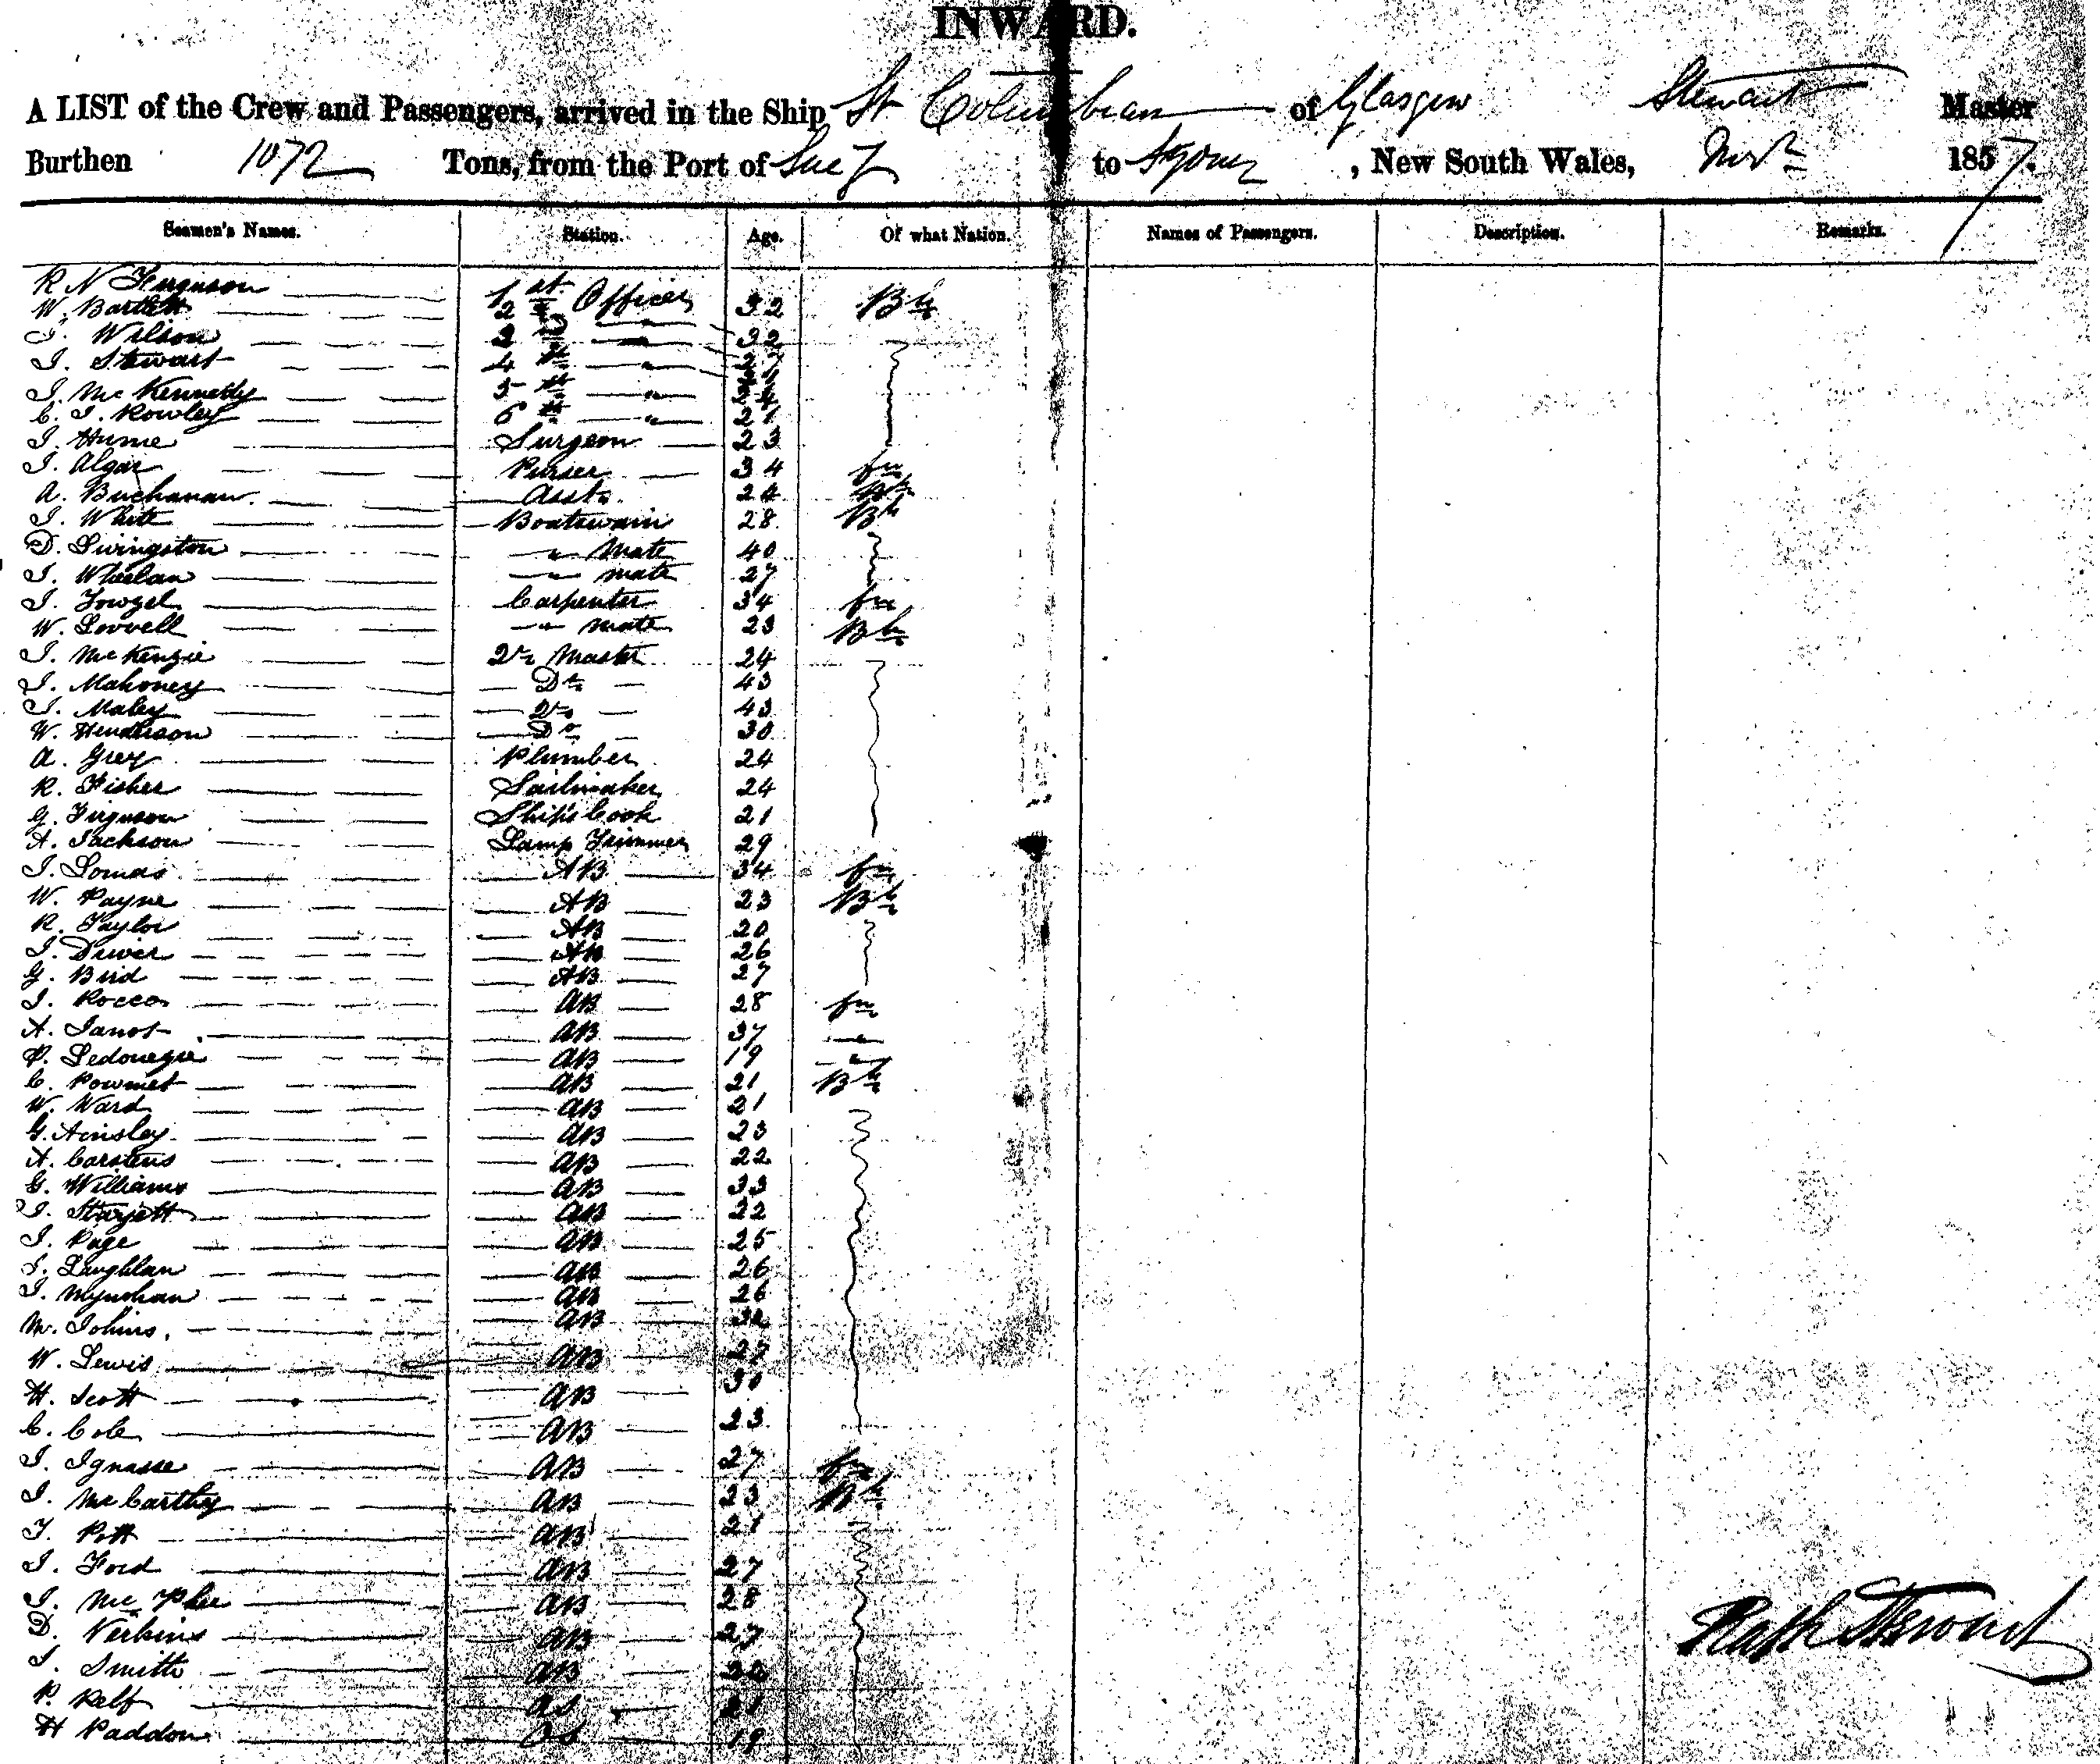 INWARD.
A LIST of the Crew and Passengers, arrived in the Ship St Columbian of Glasgow Stewart Master
Burthen 1072 Tons, from the Port of Suez to Sydney, New South Wales, 1857.
Seamen's Names. Station. Age. Of what Nation. Names of Passengers. Description. Remarks.
R N Ferguson 1st Officer 32 Bh
W. Bartlett 2
J. Wilson 3 " 32
J. Stewart 4th "
J. McKennelly 5th "
C. J. Rowley 6th " 21
J. Hume Surgeon 23
J. Algar Purser 34 fn
A. Buchanan Asst. 24
J. White Boatswain 28 Bh
D. Livingston " Mate 40
J. Whelan " mate 27
J. Towzel Carpenter 34 fn
W. Lovvell " mate 23 Bh
J. McKenzie Qr Master 24
J. Mahoney Do 43
J. Maley Do 43
W. Henderson Do 30
A. Grey Plumber 24
R. Fisher Sailmaker 24
G. Ferguson Ship's Cook 21
A. Jackson Lamp Trimmer 29
J. Lomas AB 34 fn
W. Payne AB 23 Bh
R. Taylor AB 20
J. Driver AB 26
G. Bird AB 27
J. Rocco AB 28 fn
A. Janot AB 37 "
P. Ledonegre AB 19 "
C. Powmet AB 21 Bh
W. Ward AB 21
G. Ainsley AB 23
A. Carstens AB 22
G. Williams AB 33
J. Starjett AB 22
J. Page AB 25
J. Laughlan AB 26
J. Mynohan AB 26
M. Johins. AB 32
W. Lewis AB 27
H. Scott AB 30
C. Cole AB 23
J. Ignasse AB 27 fn
J. McCarthy AB 23 Bh
T. Pott AB 21
J. Ford AB 27
J. McPhee AB 28
D. Nerkins AB 27
J. Smith AB 22
P. Relf 21
H Paddon OS 19
Stewart